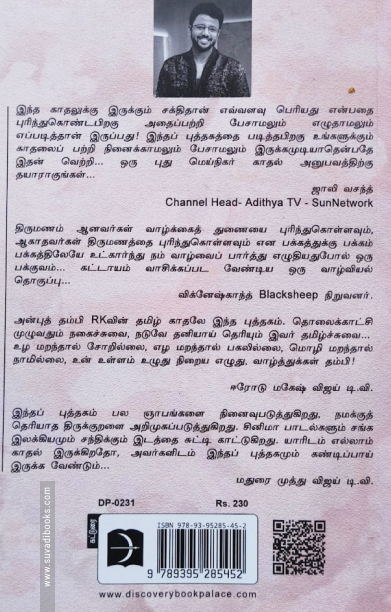 இந்த காதலுக்கு இருக்கும் சக்திதான் எவ்வளவு பெரியது என்பதை
புரிந்துகொண்டபிறகு அதைப்பற்றி பேசாமலும் எழுதாமலும்
எப்படித்தான் இருப்பது! இந்தப் புத்தகத்தை படித்தபிறகு உங்களுக்கும்
காதலைப் பற்றி நினைக்காமலும் பேசாமலும் இருக்கமுடியாதென்பதே
இதன் வெற்றி... ஒரு புது மெய்நிகர் காதல் அனுபவத்திற்கு
தயாராகுங்கள்...
ஜாலி வசந்த்
Channel Head- Adithya TV - SunNetwork
திருமணம் ஆனவர்கள் வாழ்க்கைத் துணையை புரிந்துகொள்ளவும்,
ஆகாதவர்கள் திருமணத்தை புரிந்துகொள்ளவும் என பக்கத்துக்கு பக்கம்
பக்கத்திலேயே உட்கார்ந்து நம் வாழ்வைப் பார்த்து எழுதியதுபோல் ஒரு
பக்குவம்... கட்டாயம் வாசிக்கப்பட வேண்டிய ஒரு வாழ்வியல்
தொகுப்பு...
விக்னேஷ்காந்த் Blacksheep நிறுவனர்.
அன்புத் தம்பி RKவின் தமிழ் காதலே இந்த புத்தகம். தொலைக்காட்சி
முழுவதும் நகைச்சுவை, நடுவே தனியாய் தெரியும் இவர் தமிழ்ச்சுவை...
உழ மறந்தால் சோறில்லை, எழ மறந்தால் பகலில்லை, மொழி மறந்தால்
நாமில்லை, உன் உள்ளம் உழுது நிறைய எழுது. வாழ்த்துக்கள் தம்பி!
ஈரோடு மகேஷ் விஜய் டி.வி.
இந்தப் புத்தகம் பல ஞாபங்களை நினைவுபடுத்துகிறது, நமக்குத்
தெரியாத திருக்குறளை அறிமுகப்படுத்துகிறது. சினிமா பாடல்களும் சங்க
இலக்கியமும் சந்திக்கும் இடத்தை சுட்டி காட்டுகிறது. யாரிடம் எல்லாம்
காதல் இருக்கிறதோ, அவர்களிடம் இந்தப் புத்தகமும் கண்டிப்பாய்
இருக்க வேண்டும்...
மதுரை முத்து விஜய் டி.வி.
DP-0231 Rs. 230
கட்டுரை
ISBN 978-93-95285-45-2
9 789395 285452
www.discoverybookpalace.com
www.suvadibooks.com